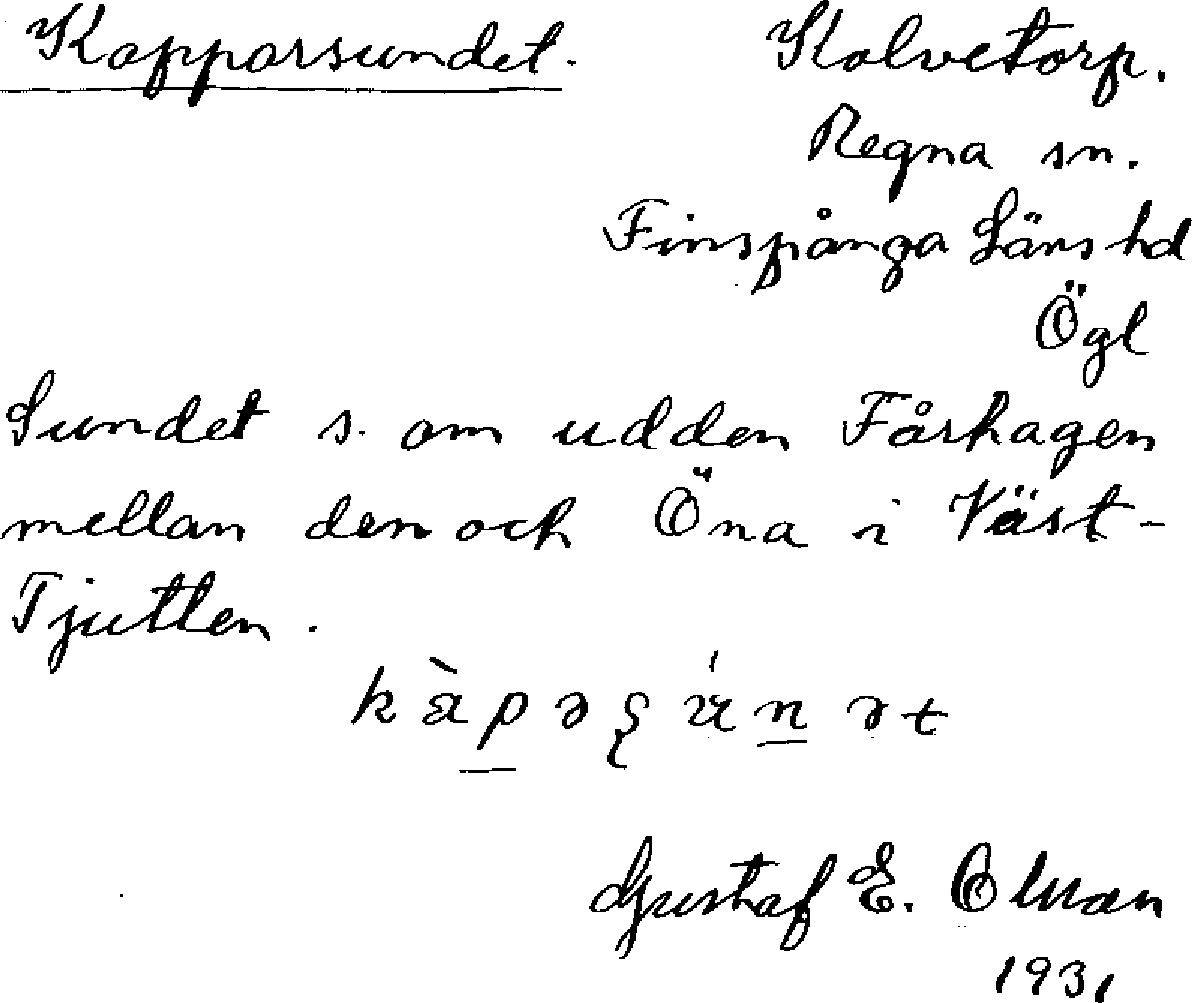 Kopparsundet. Kolvetorp.
Regna sn.
Finspånga Läns hd
Ögl
Sundet s. om udden Fårhagen
mellan den och Öna i Väst-
Tjutten.
Gustaf E.
1931